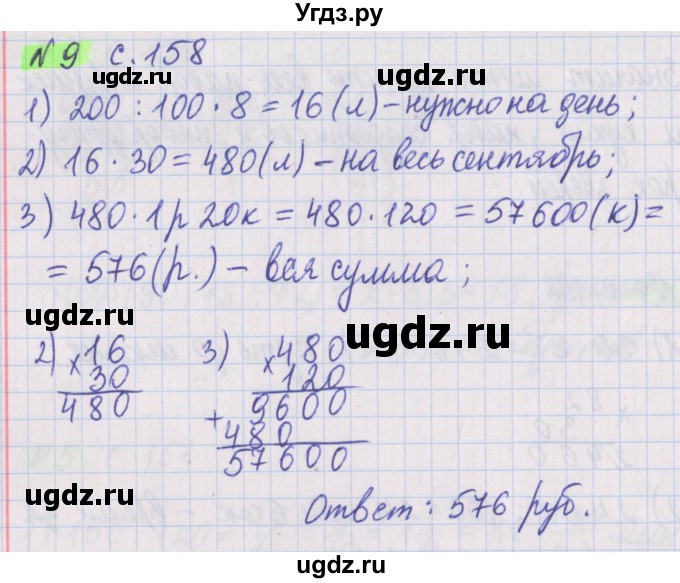 Угдз.ру
№9 с. 158
ugdz.ru ugdz.ru
1) 200 : 100 · 8 = 16 (л) – нужно на день;
2) 16 · 30 = 480 (л) – на весь сентябрь;
ugdz.ru ugdz.ru
3) 480 · 1р 20к = 480 · 120 = 57600 (к) =
= 576 (р.) – вся сумма;
ugdz.ru ugdz.ru
2) × 16
30
480
3) × 480
120
9600
+ 480
57600
ugdz.ru ugdz.ru
Ответ: 576 руб.
Угдз.ру